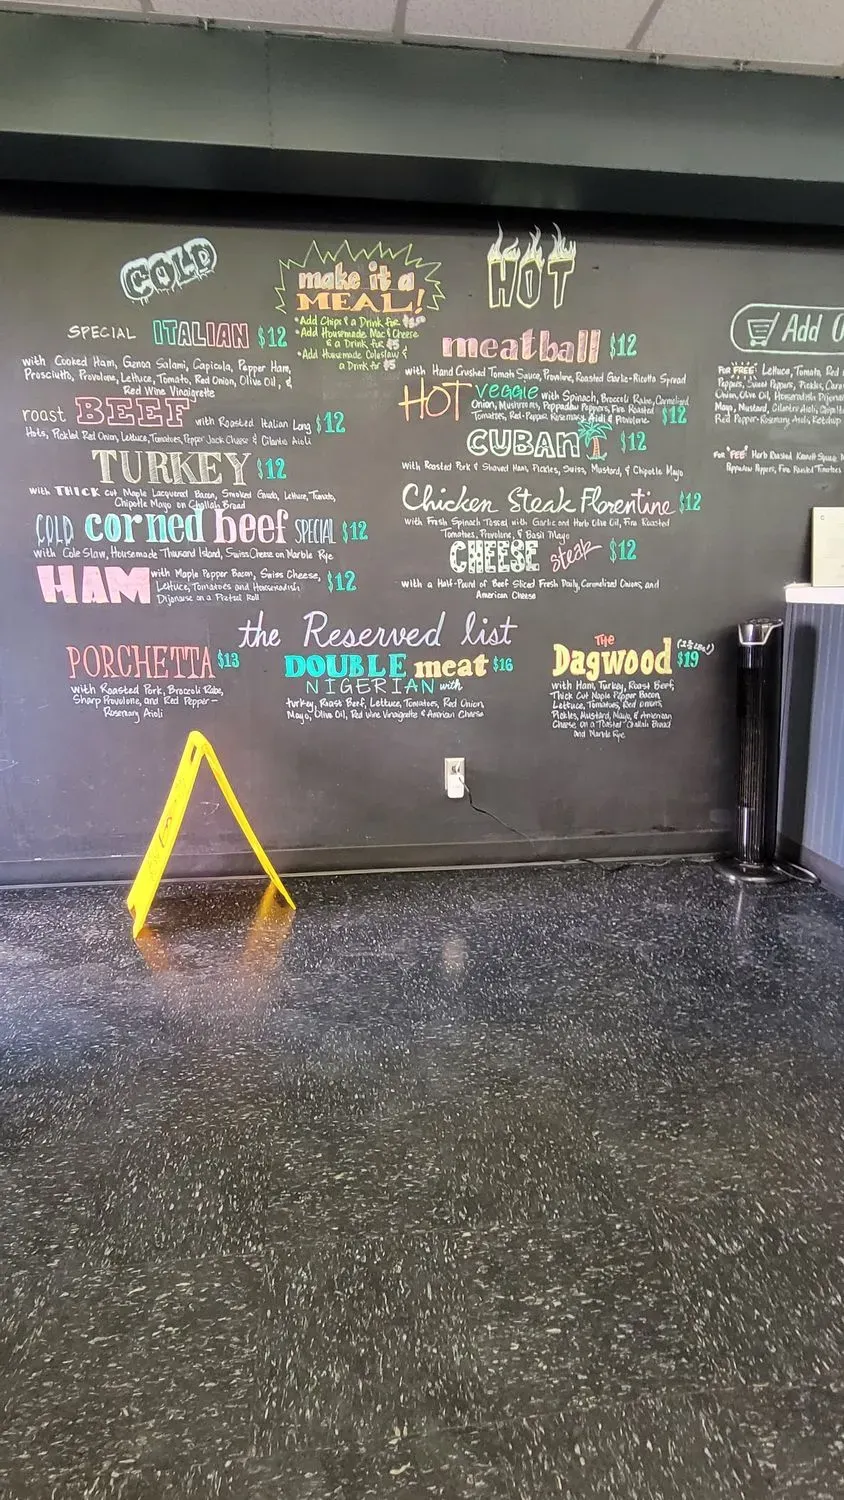 COLD
SPECIAL ITALIAN $12
with Cooked Ham, Genoa Salami, Capicola, Pepper Ham,
Prosciutto, Provolone, Lettuce, Tomato, Red Onion, Olive Oil, &
Red Wine Vinaigrette
roast BEEF with Roasted Italian Long $12
Hots, Pickled Red Onion, Lettuce, Tomatoes, Pepper Jack Cheese & Cilantro Aioli
TURKEY $12
with THICK cut Maple Lacquered Bacon, Smoked Gouda, Lettuce, Tomato,
Chipotle Mayo on Challah Bread
COLD corned beef SPECIAL $12
with Cole Slaw, Housemade Thousand Island, Swiss Cheese on Marble Rye
HAM with Maple Pepper Bacon, Swiss Cheese, $12
Lettuce, Tomatoes and Housemade
Dijonaise on a Pretzel Roll
make it a
MEAL!
• Add Chips & a Drink for
• Add Housemade Mac & Cheese
& a Drink for $5
• Add Housemade Coleslaw &
a Drink for $5
HOT
meatball $12
with Hand Crushed Tomato Sauce, Provolone, Roasted Garlic-Ricotta Spread
HOT veggie with Spinach, Broccoli Rabe, Carmelized
Onion, Mushrooms, Peppadew Peppers, Fire Roasted
Tomatoes, Red-Pepper Rosemary Aioli & Provolone $12
CUBAN $12
with Roasted Pork & Shaved Ham, Pickles, Swiss, Mustard, & Chipotle Mayo
Chicken Steak Florentine $12
with Fresh Spinach Tossed with Garlic and Herb Olive Oil, Fire Roasted
Tomatoes, Provolone, & Basil Mayo
CHEESE steak $12
with a Half-Pound of Beef Sliced Fresh Daily, Carmelized Onions, and
American Cheese
Add
FOR FREE: Lettuce, Tomato, Red
Peppers, Sweet Peppers, Pickles,
Onion, Olive Oil, Housemade
Mayo, Mustard, Cilantro Aioli,
Red Pepper-Rosemary Aioli, Ketchup
FOR "FEE" Herb Roasted
Peppadew Peppers, Fire Roasted Tomatoes
the Reserved list
PORCHETTA $13
with Roasted Pork, Broccoli Rabe,
Sharp Provolone, and Red Pepper-
Rosemary Aioli
DOUBLE meat $16
NIGERIAN with
turkey, Roast Beef, Lettuce, Tomatoes, Red Onion,
Mayo, Olive Oil, Red Wine Vinaigrette & American Cheese
THE
Dagwood $19
with Ham, Turkey, Roast Beef,
Thick Cut Maple Pepper Bacon,
Lettuce, Tomatoes, Red Onions,
Pickles, Mustard, Mayo, & American
Cheese on a "Toasted" Challah Bread
and Marble Rye